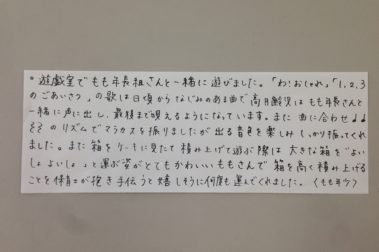 * 遊戯室でもも年長組さんと一緒に遊びました。「わ!おしゃれ」「1,2,3
のごあいさつ」の歌は日頃からなじみのある曲で高月齢児はもも年長さんと
一緒に声に出し、最後まで唄えるようになっています。また曲に合わせ♩♩
のリズムでマラカスを振りましたが出る音色を楽しみしっかり振ってくれ
ました。また箱をケーキに見たて積み上げて遊ぶ際は大きな箱を"よい
しょよいしょ"と運ぶ姿がとてもかわいいももさんで箱を高く積み上げる
ことを保育士が抱き手伝うと嬉しそうに何度も運んでくれました。(もも